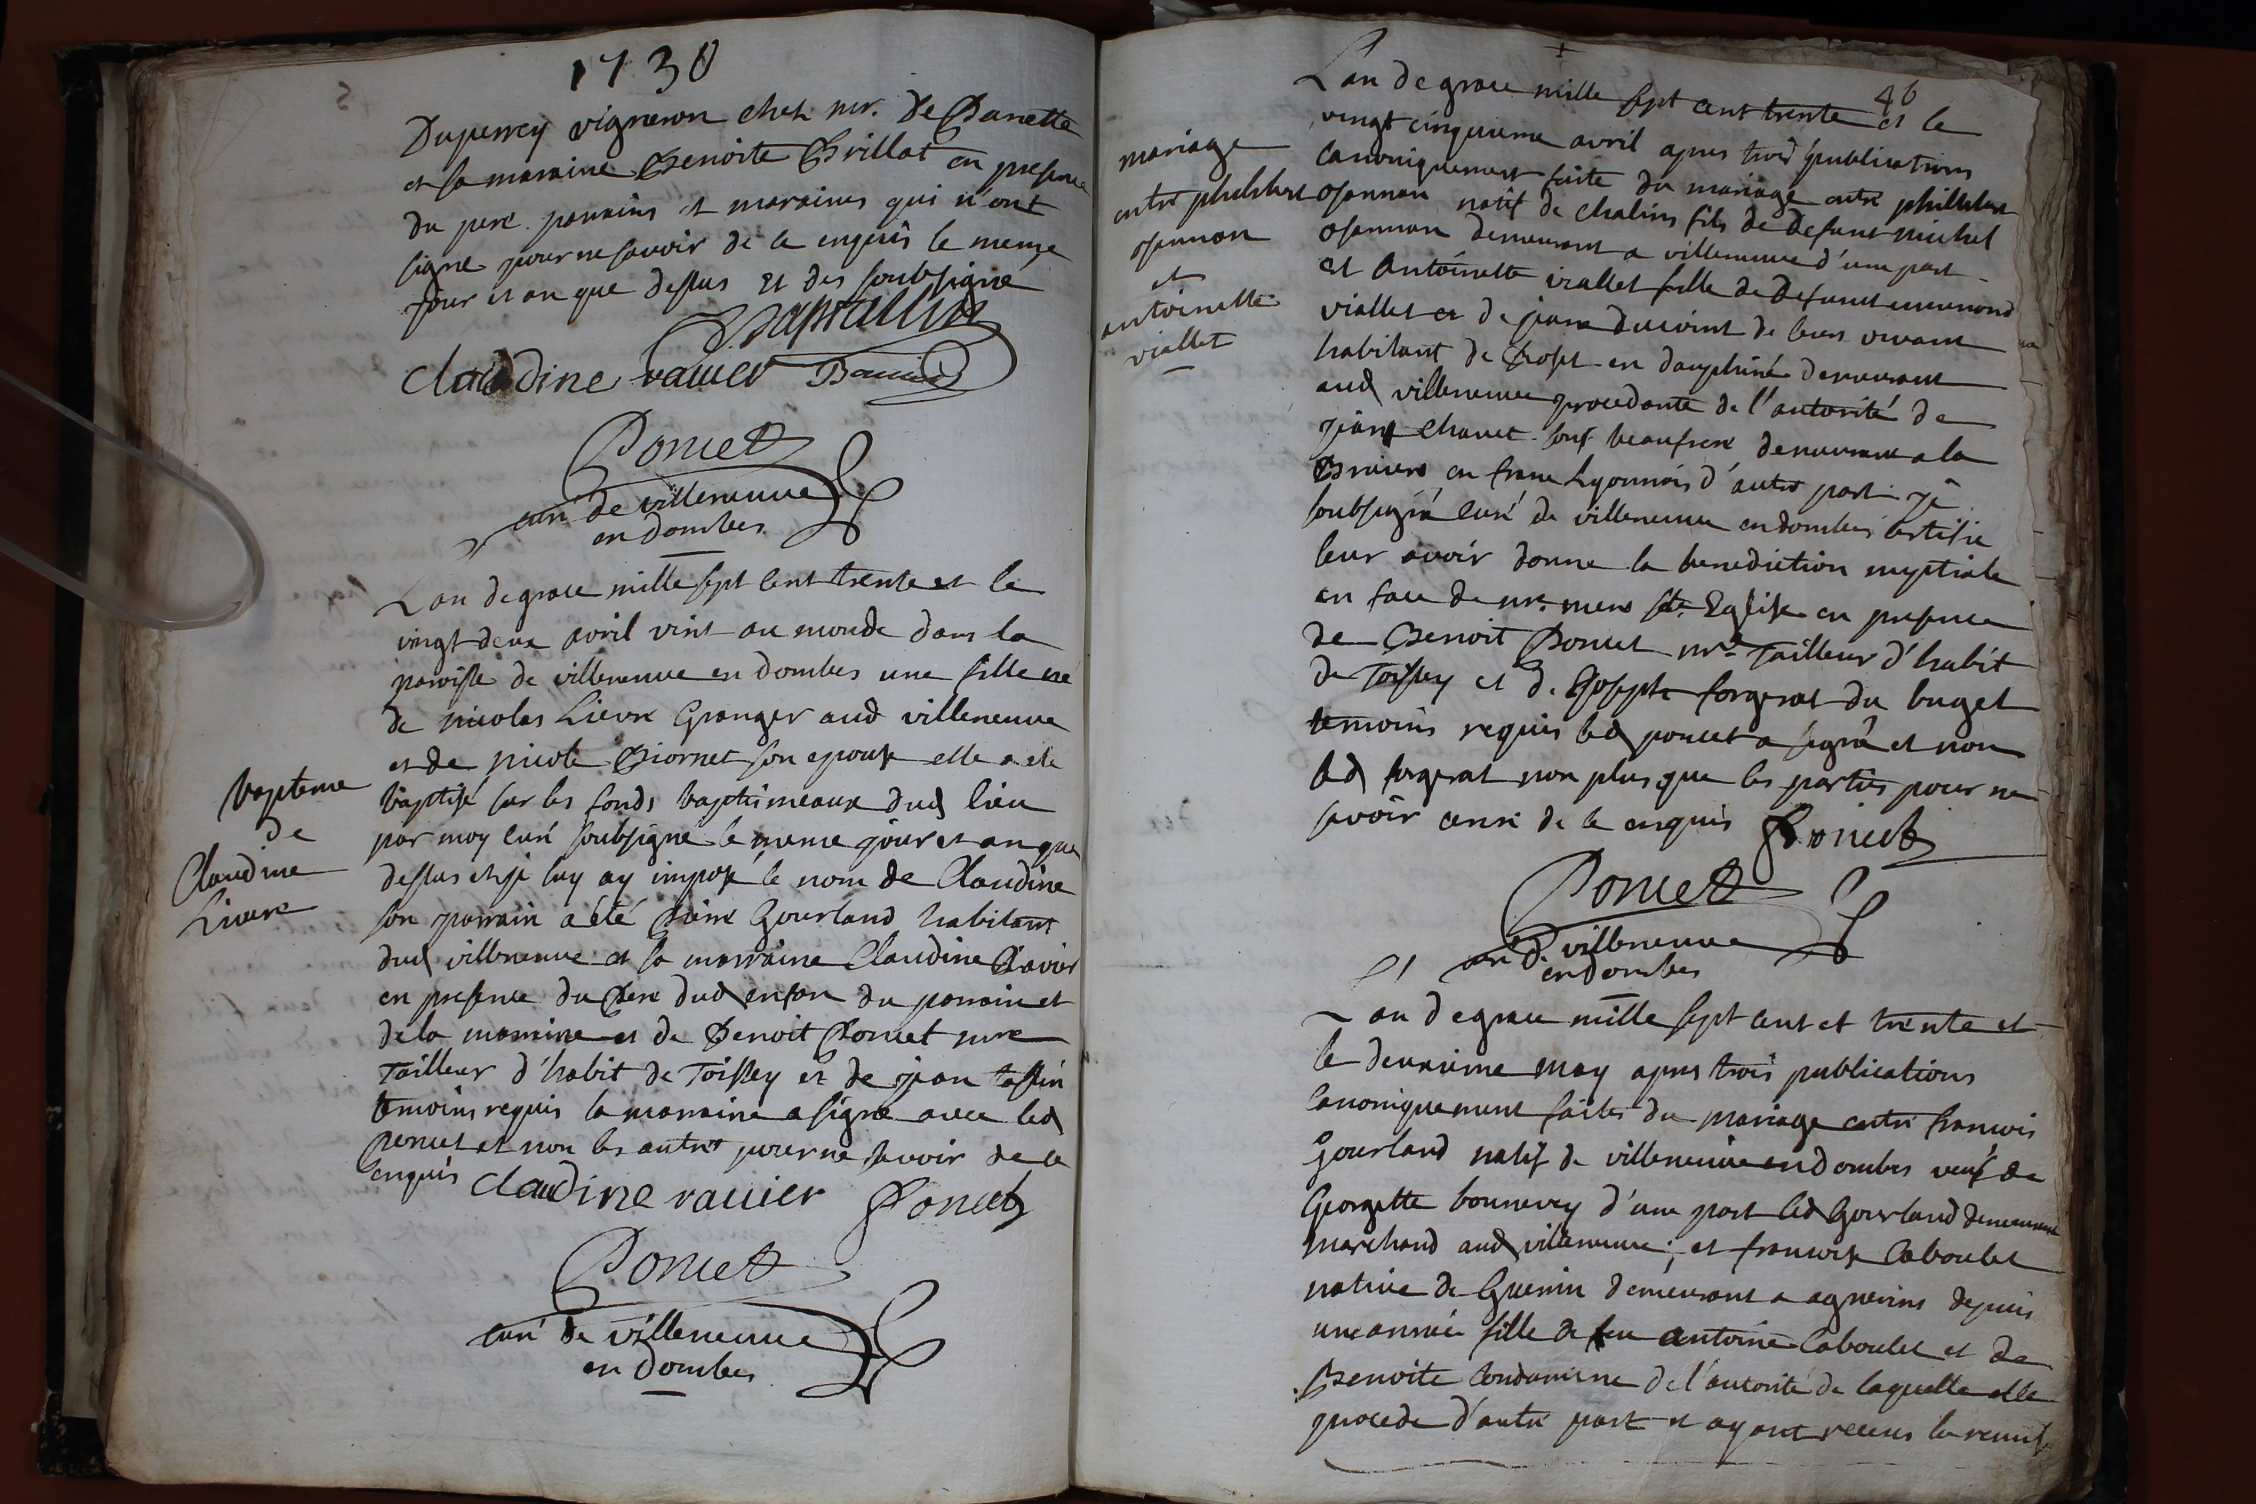 1730
Duperrey vigneron chez mr. de
et sa maraine Benoite Brillat en presence
du pere parains et maraines qui n'ont
signe pour ne savoir de ce enquis le meme
jour et an que dessus et des soubsigné
claudine ravier
Poncet
curé de villeneuve
en dombes
L'an de grace mille sept cent trente et le
vingt deux avril vint au monde dans la
paroisse de villeneuve en dombes une fille né
de nicolas Lievre Granger aud villeneuve
et de nicole Biornet son epouse elle a ete
baptisé sur les fonds baptismeaux dud lieu
par moy curé soubsigné le meme jour et an que
dessus et je luy ay imposé le nom de Claudine
son parrain a été Gourland habitant
dud villeneuve et sa marraine Claudine Ravier
en presence du Pere dud enfan du parrain et
de la marraine et de Benoit Poncet mre
Tailleur d'habit de Toissey et de jean
temoins requis la marraine a signe avec led
Poncet et non les autres pour ne savoir de ce
enquis claudine ravier Poncet
bapteme
de
Claudine
Lievre
Poncet
curé de villeneuve
en dombes
46
L'an de grace mille sept cent trente et le
vingt cinquieme avril apres trois publications
canoniquement faite du mariage entre philibert
osannan natif de chalins fils de defunt michel
osannan demeurant a villeneuve d'une part
et Antoinette viallet fille de defunt
viallet et de de leur vivant
habitant de en dauphiné demeurant
aud villeneuve procedante de l'autorité de
jean chavet son beaufrere demeurant a la
en franc Lyonnois d'autre part je
soubsigné curé de villeneuve en dombes certifie
leur avoir donne la benediction nuptiale
en face de nre. mere ste. Eglise en presence
de Benoit Poncet mre Tailleur d'habit
de Toissey et de Joseph forgerat du buget
temoins requis led poncet a signé et non
led forgerat non plus que les parties pour ne
savoir de ce enquis Poncet
mariage
entre philibert
osannon
et
antoinette
viallet
Poncet
curé de villeneuve
en dombes
L'an de grace mille sept cent et trente et
le deuxieme may apres trois publications
canoniquement faites du mariage entre francois
Gourland natif de villeneuve en dombes veuf de
Georgette bonnevey d'une part led Gourland demeurant
marchand aud villeneuve; et francoise Caboulet
native de Guerin demeurant a agnerins depuis
une année fille de feu antoine Caboulet et de
Benoite Condamine de l'autorité de laquelle elle
procede d'autre part et ayant receus la remise